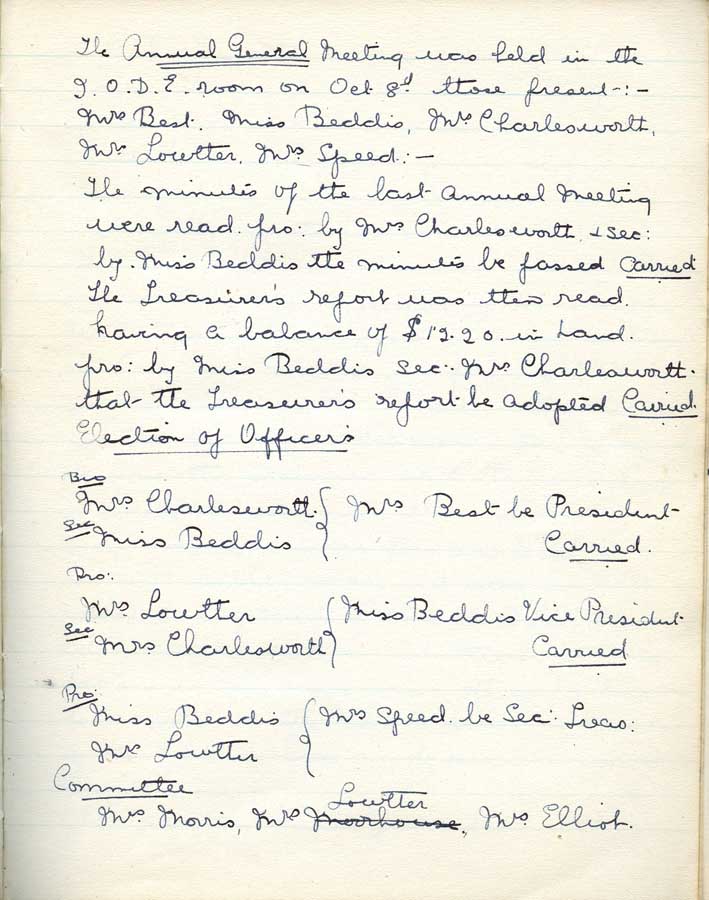 The Annual General Meeting was held in the
I.O.D.E. room on Oct 8th those present-:-
Mrs Best, Miss Beddis, Mrs Charlesworth,
Mrs Lowtter, Mrs Speed:-
The minutes of the last Annual Meeting
were read. pro: by Mrs Charlesworth & sec:
by Miss Beddis the minutes be passed Carried
The Treasurer's report was then read.
having a balance of $12.20 in hand.
pro: by Miss Beddis sec: Mrs Charlesworth.
that the Treasurer's report be adopted Carried.
Election of Officers
Pro
Mrs Charlesworth } Mrs Best be President
Sec Miss Beddis } Carried.
Pro:
Mrs Lowtter } Miss Beddis Vice President
Sec Mrs Charlesworth } Carried
Pro:
Miss Beddis } Mrs Speed. be Sec: Treas:
Mrs Lowtter }
Committee
Lowtter
Mrs Morris, Mrs Moorhouse, Mrs Elliot.